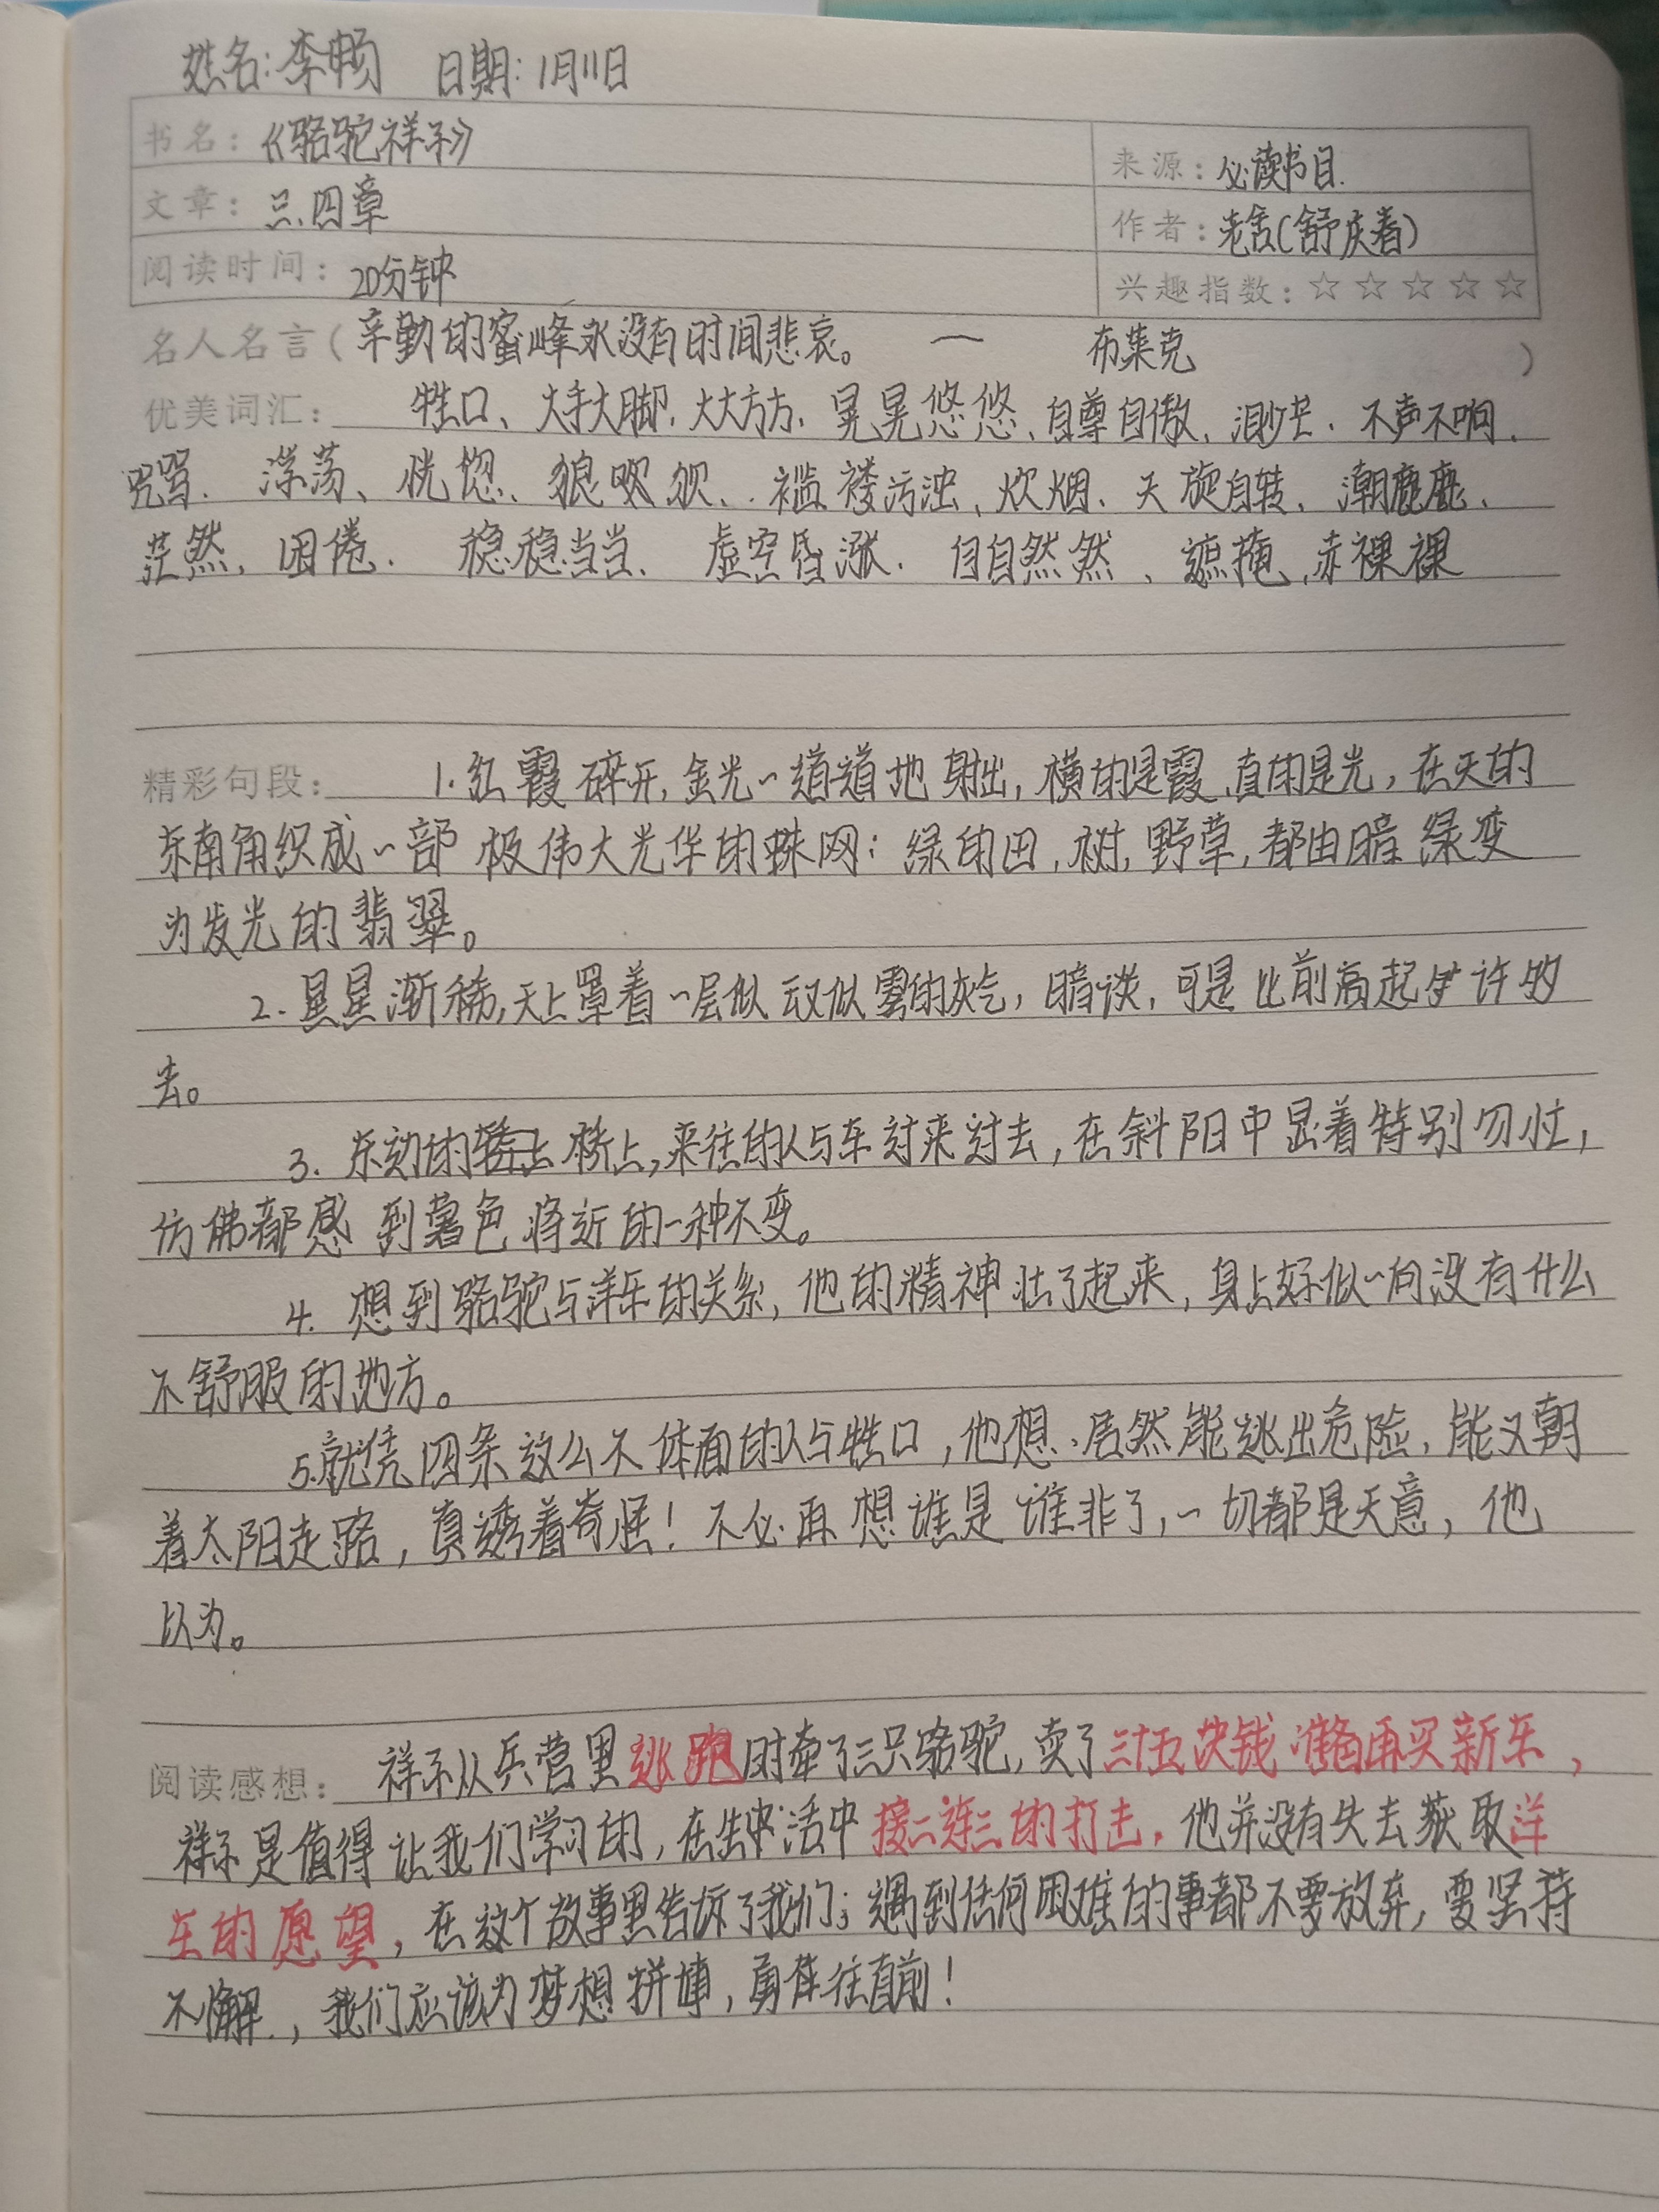 姓名:李畅 日期:1月11日
书名:《骆驼祥子》 来源:必读书目.
文章:三.四章 作者:老舍(舒庆春)
阅读时间:20分钟 兴趣指数:☆☆☆☆☆
名人名言(辛勤的蜜蜂永没有时间悲哀。 一 布莱克 )
优美词汇: 牲口、大手大脚.大大方方.晃晃悠悠、自尊自傲.渺茫.不声不响.
咒骂.浮荡、恍惚、狼吠.褴褛污浊、炊烟.天旋自转.潮鹿鹿、
茫然.困倦.稳稳当当.虚空昏涨.自自然然、遮掩.赤裸裸
精彩句段: 1.红霞碎开,金光一道道地射出,横的是霞,直的是光,在天的
东南角织成一部极伟大光华的蛛网:绿的田,树,野草,都由暗绿变
为发光的翡翠。
2.星星渐稀,天上罩着一层似云又似雾的灰气,暗淡,可是比前高起许多
去。
3.东边的桥上,来往的人与车过来过去,在斜阳中显着特别匆忙,
仿佛都感到暮色将近的一种不变。
4.想到骆驼与洋车的关系,他的精神壮了起来,身上好似一向没有什么
不舒服的地方。
5.就凭四条这么不体面的人与牲口,他想.居然能逃出危险,能又朝
着太阳走路,真透着奇怪!不必再想谁是谁非了,一切都是天意,他
以为。
阅读感想: 祥子从兵营里逃跑时牵了三只骆驼,卖了三十五块钱准备再买新车,
祥子是值得让我们学习的,在生活中接二连三的打击,他并没有失去获取洋
车的愿望,在这个故事里告诉了我们;遇到任何困难的事都不要放弃,要坚持
不懈.,我们应该为梦想拼搏,勇往直前!